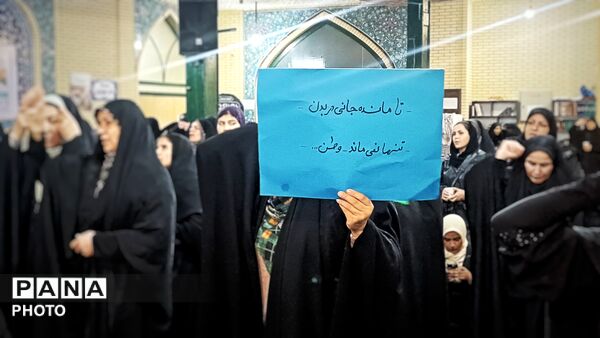 - تا مانده جانی در بدن -
- تنها نمی ماند - وطن... -
PANA
PHOTO